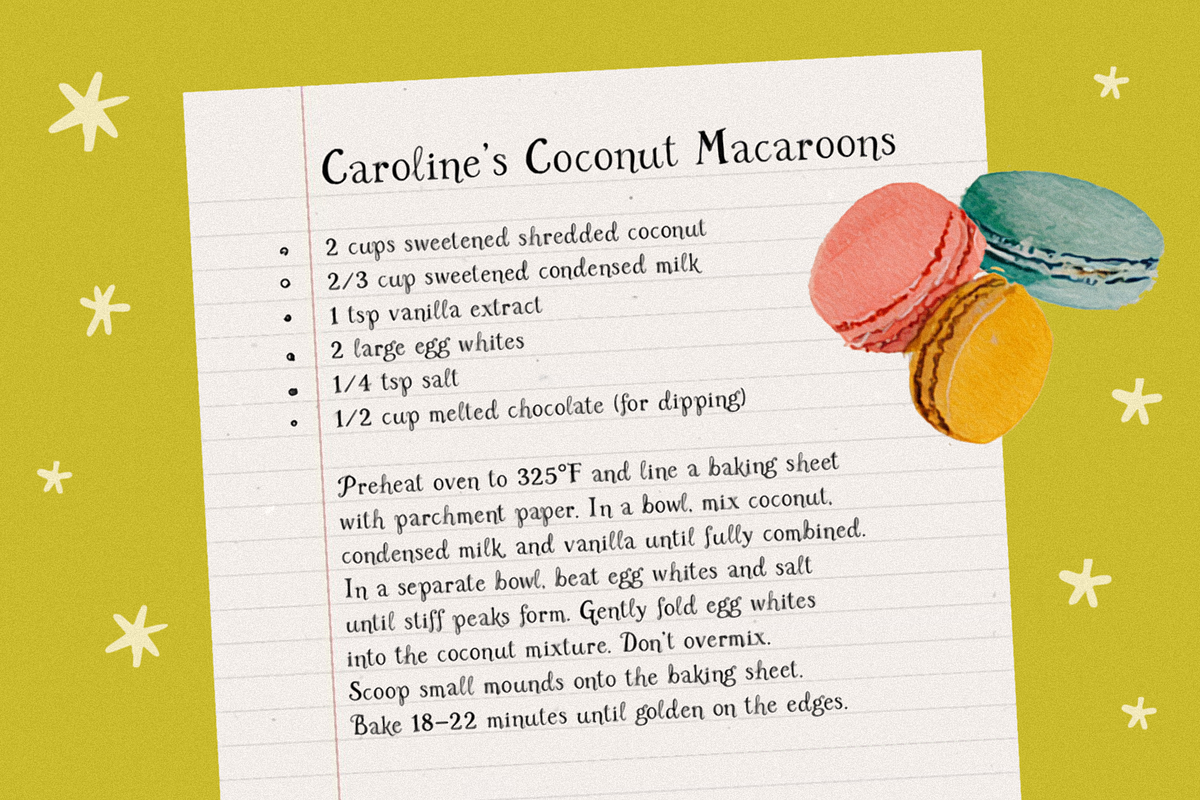 Caroline's Coconut Macaroons
2 cups sweetened shredded coconut
2/3 cup sweetened condensed milk
1 tsp vanilla extract
2 large egg whites
1/4 tsp salt
1/2 cup melted chocolate (for dipping)
Preheat oven to 325°F and line a baking sheet
with parchment paper. In a bowl, mix coconut,
condensed milk, and vanilla until fully combined.
In a separate bowl, beat egg whites and salt
until stiff peaks form. Gently fold egg whites
into the coconut mixture. Don't overmix.
Scoop small mounds onto the baking sheet.
Bake 18–22 minutes until golden on the edges.